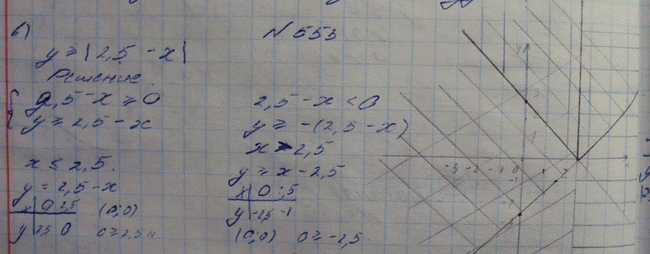 б)
N 553
y ≥ |2,5 - x|
Решение
{ 2,5 - x ≥ 0
y ≥ 2,5 - x
x ≤ 2,5.
y = 2,5 - x
x | 0 2,5
y | 2,5 0
(0;0)
0 ≥ 2,5
2,5 - x < 0
y ≥ -(2,5 - x)
x > 2,5
y = x - 2,5
x | 0
y | -2,5 -1
(0;0) 0 ≥ -2,5
y
-3 -2 -1 0